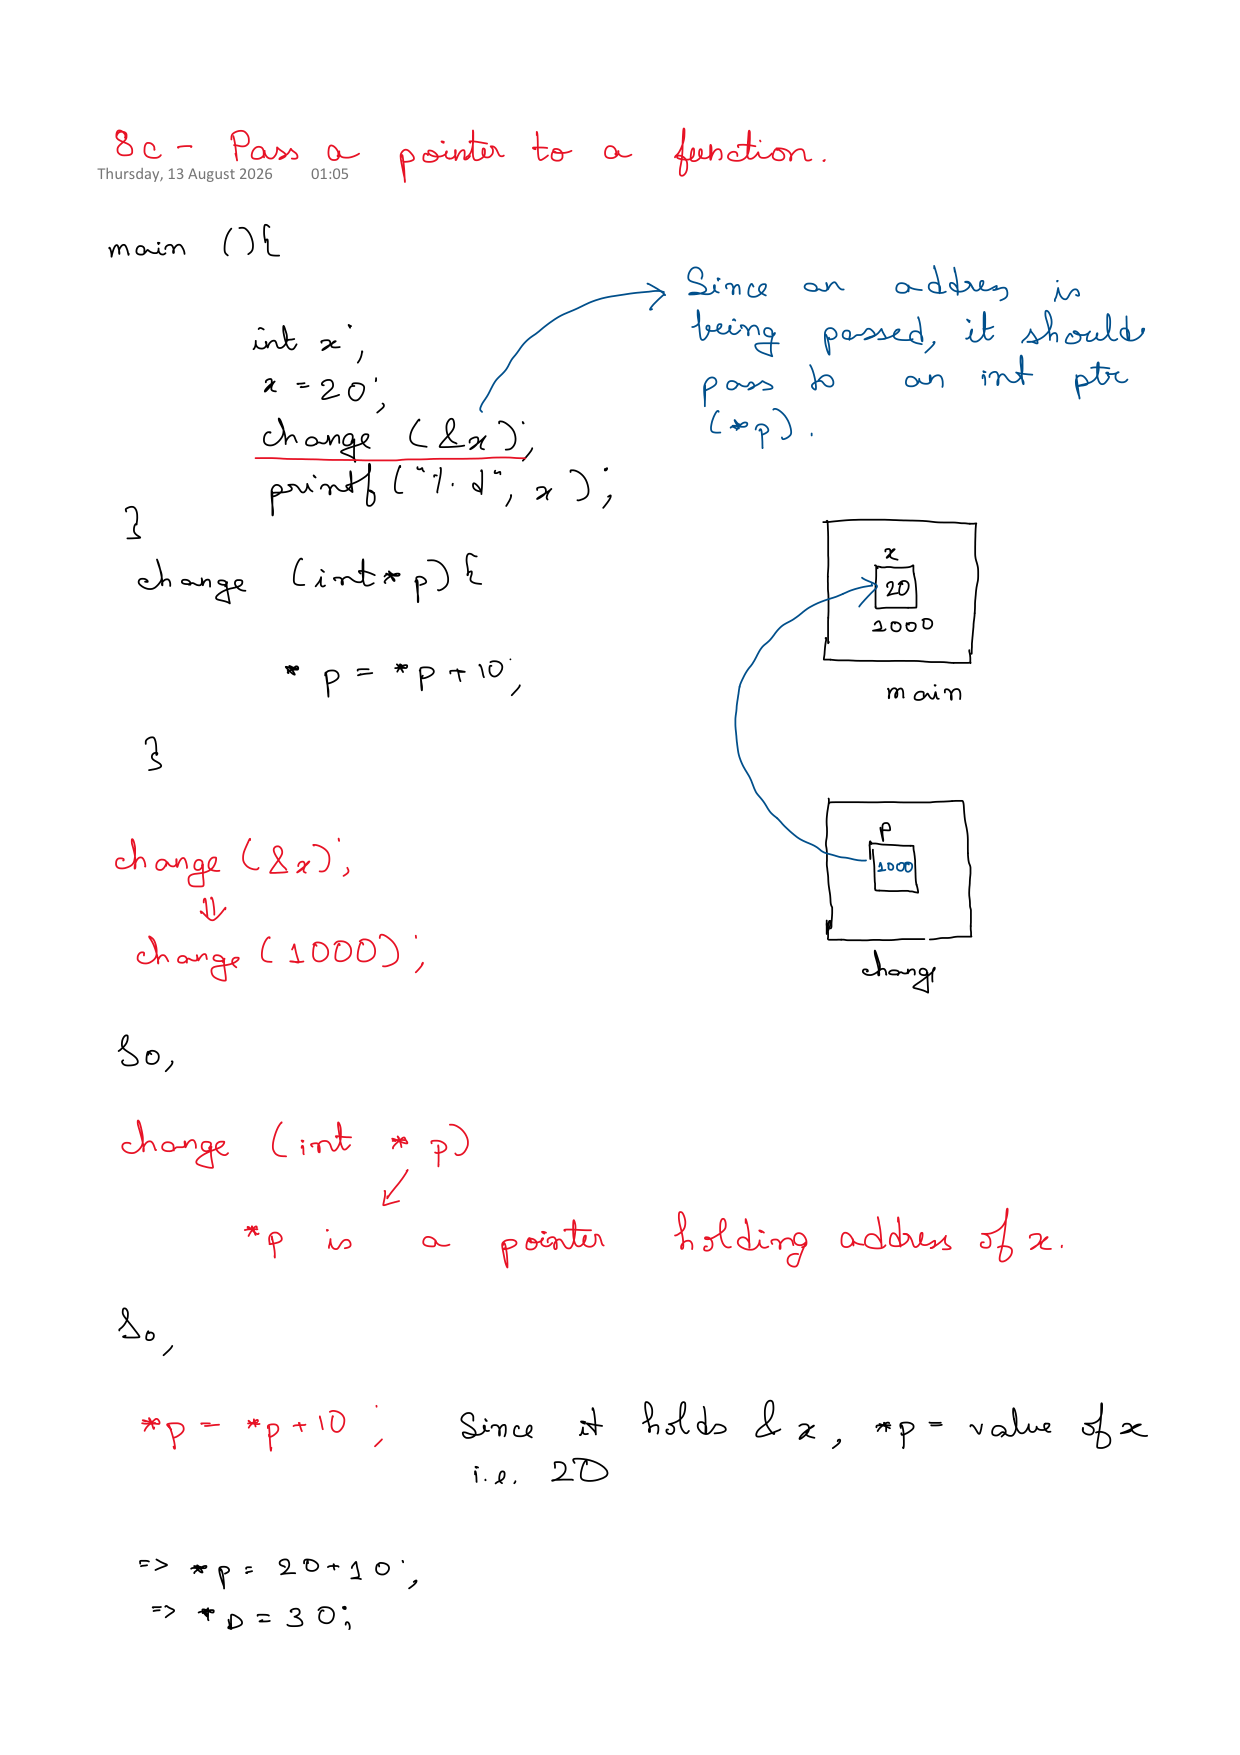 8c - Pass a pointer to a function.
Thursday, 13 August 2026 01:05
main (){
int x;
x = 20;
change (&x);
printf ("%d", x);
}
Since an address is
being passed, it should
pass to an int ptr
(*p).
change (int* p){
*p = *p + 10;
}
x
20
1000
main
p
1000
change
change (&x);
⇓
change (1000);
So,
change (int * p)
*p is a pointer holding address of x.
So,
*p = *p + 10 ; Since it holds & x, *p = value of x
i.e. 20
=> *p = 20 + 10;
=> *p = 30;